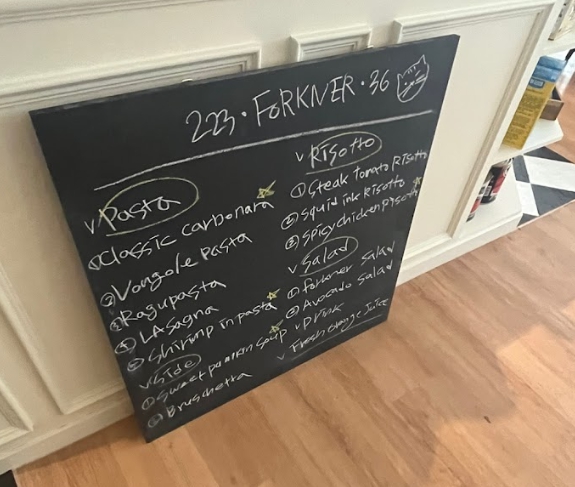 223 · FORKNER · 36
v Pasta
① Classic carbonara
② Vongole pasta
③ Ragu pasta
④ LAsagna
⑤ Shirimp in pasta
v Side
① Sweet pumkin soup
② Bruschetta
v Risotto
① Steak tomato Risotto
② Squid ink Risotto
③ Spicy chicken risotto
v Salad
① Forkner salad
② Avocado salad
v Drink
v Fresh orange juice